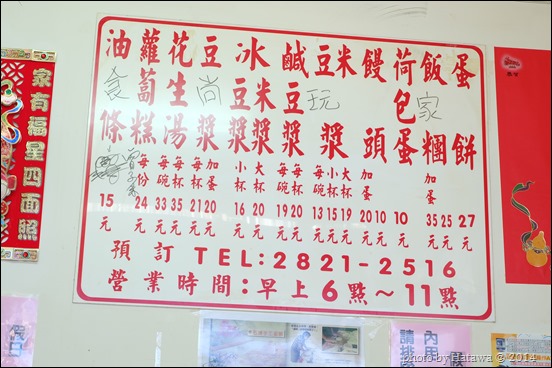 蛋餅 27元
飯糰 25元 加蛋 35元
荷包蛋 10元
饅頭 10元 加蛋 20元
豆米漿 每碗 13元 小杯 15元 大杯 19元
鹹豆漿 每碗 19元 每碗 20元
冰豆漿米漿 小杯 16元 大杯 20元
豆漿 21元 加蛋 20元
花生湯 每碗 33元 每杯 35元
蘿蔔糕 每份 24元
油條 15元
食尚玩家
預訂TEL:2821-2516
營業時間:早上6點~11點
家有福星四面照
photo by Hatawa @ 2014